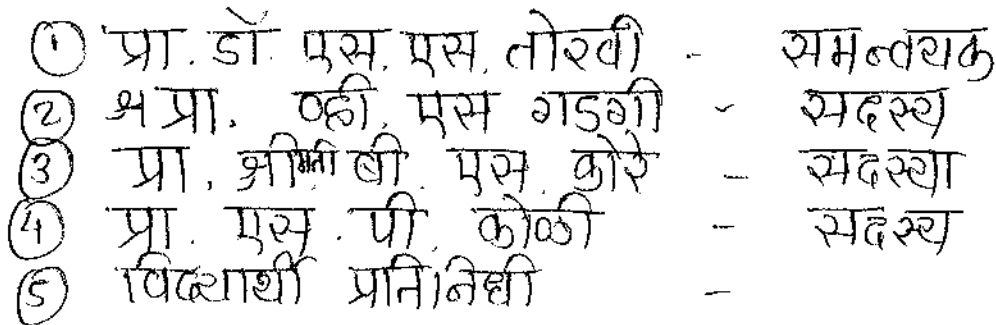 ① प्रा. डॉ. एस. एस. तोरवी - समन्वयक
② प्रा. व्ही. एस गडगी - सदस्य
③ प्रा. श्रीमती बी. एस. कोरे - सदस्या
④ प्रा. एस. पी. कोळी - सदस्य
⑤ विद्यार्थी प्रतिनिधी -